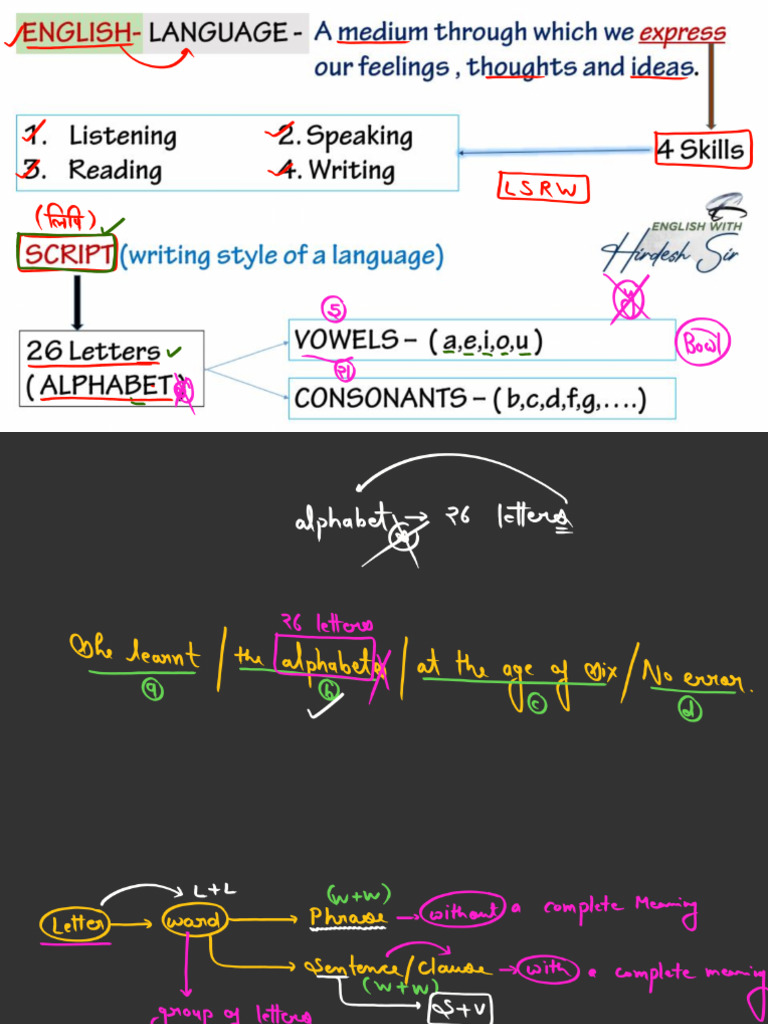 ENGLISH- LANGUAGE - A medium through which we express
our feelings , thoughts and ideas.
1. Listening 2. Speaking
3. Reading 4. Writing
4 Skills
LSRW
(लिपि)
SCRIPT (writing style of a language)
ENGLISH WITH
Hirdesh Sir
26 Letters
(ALPHABET)
5
VOWELS – ( a,e,i,o,u )
Bowl
21
CONSONANTS – ( b,c,d,f,g,….)
alphabet → 26 letters
26 letters
She learnt / the alphabets / at the age of six / No error.
a b c d
L+L
(W+W)
Letter word Phrase without a complete Meaning
Sentence/Clause with a complete meaning
(W+W)
S+V
group of letters